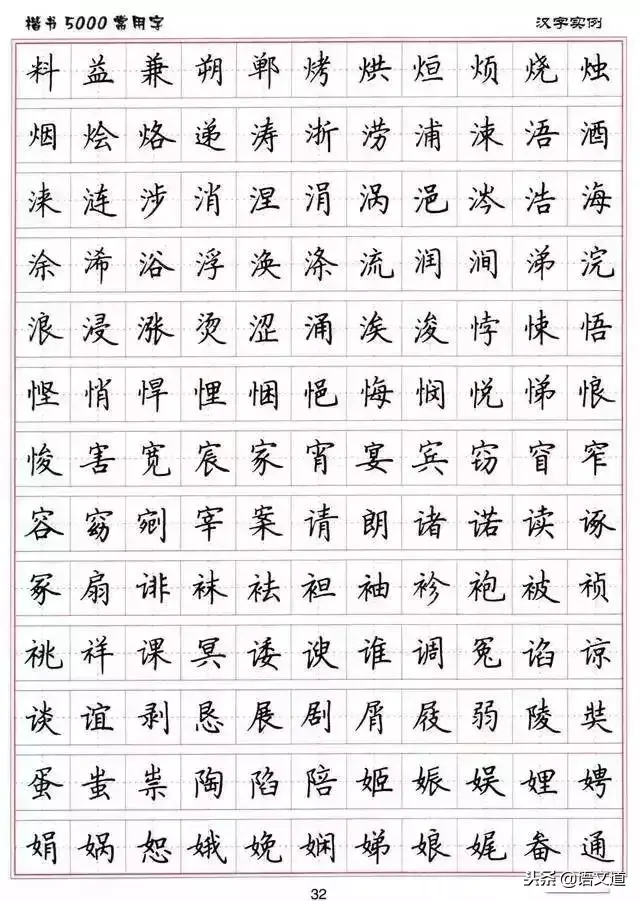 楷书5000常用字 汉字实例
料益兼朔郸烤烘烜烦烧烛
烟烩烙递涛浙涝浦涑浯酒
涞涟涉消涅涓涡浥涔浩海
涂浠浴浮涣涤流润涧涕浣
浪浸涨烫涩涌涘浚悖悚悟
悭悄悍悝悃悒悔悯悦悌悢
悛害宽宸家宵宴宾窃窅窄
容窈剜宰案请朗诸诺读诼
冢扇诽袜祛袒袖袗袍被祯
祧祥课冥诿谀谁调冤谄谅
谈谊剥恳展剧屑屐弱陵奘
蛋蚩祟陶陷陪姬娠娱娌娉
娟娲恕娥娩娴娣娘娓畚通
32
头条@语文道